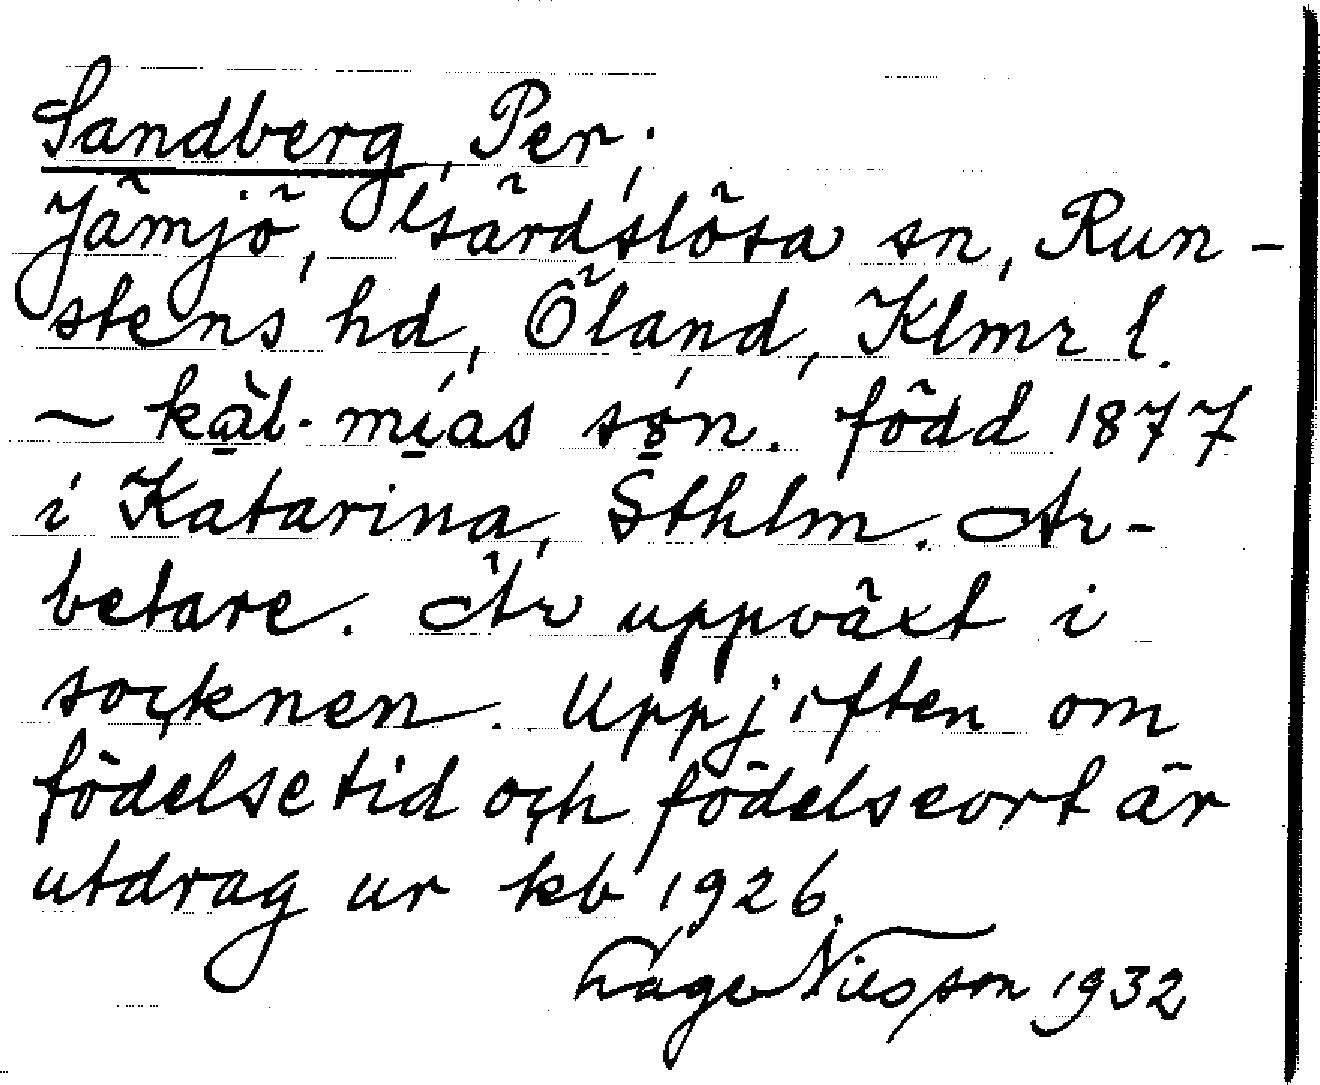 Sandberg, Per, .
Jämjö, Gärdslösa sn, Run-
stens hd, Öland, Klmr l.
~ käl. mías són. född 1877
i Katarina, Sthlm. Ar-
betare. Är uppväxt i
socknen. Uppjiften om
födelsetid och födelseort är
utdrag ur kb 1926.
Lage Nilsson 1932